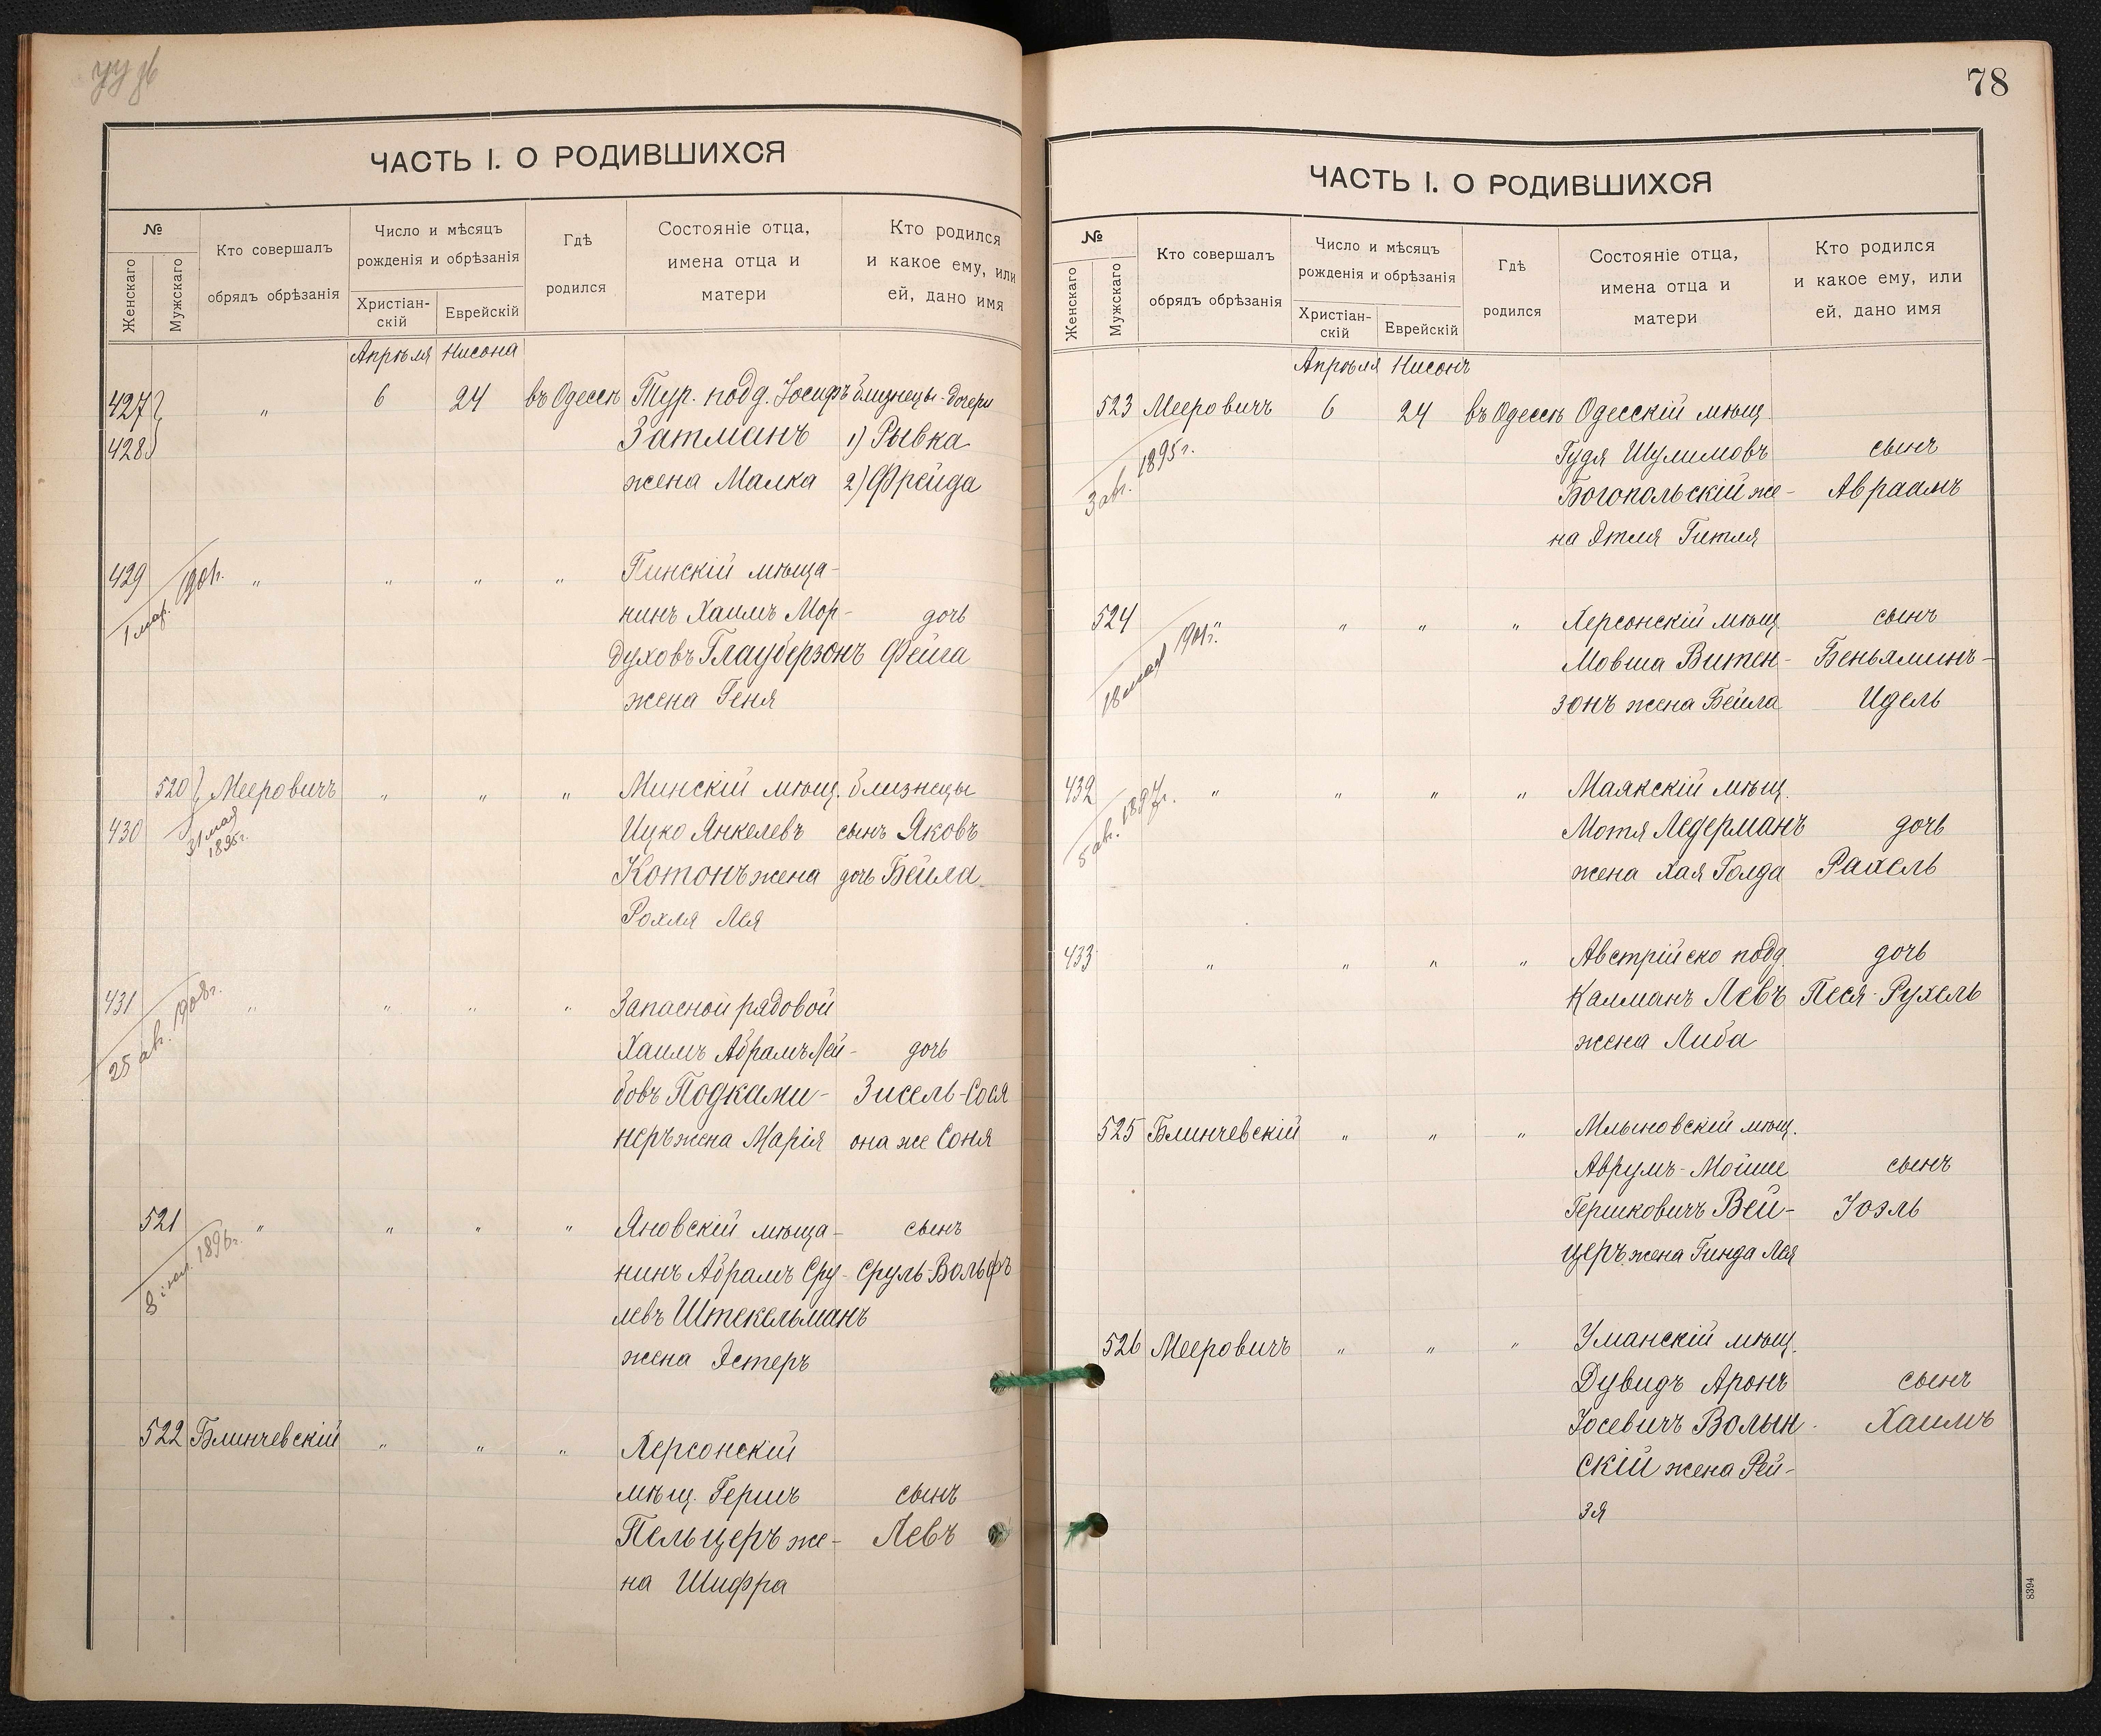 ЧАСТЬ I. О РОДИВШИХСЯ
№
Женскаго
Мужскаго
Кто совершалъ
обрядъ обрѣзанія
Число и мѣсяцъ
рожденія и обрѣзанія
Христіан-
скій
Еврейскій
Гдѣ
родился
Состояніе отца,
имена отца и
матери
Кто родился
и какое ему, или
ей, дано имя
Апрѣля Нисона
427 " 6 24 въ Одессѣ Тур. подд. Іосифъ близнецы-дочери
428 Затманъ 1) Рывка
жена Малка 2) Фрейда
429 1 мар. 1901г. " " " " Пинскій мѣща-
нинъ Хаимъ Мор- дочь
духовъ Глауберзонъ Фейга
жена Геня
520 Мееровичъ " " " Минскій мѣщ. близнецы
430 31 мая 1895г. Ицко Янкелевъ сынъ Яковъ
Котонъ жена дочь Бейла
Рохля Лея
431 25 ав. 1908г. " " " " Запасной рядовой
Хаимъ Абрамъ Лей- дочь
бовъ Подками- Зисель-Сося
неръ жена Марія она же Соня
521 8 іюл. 1896г. " " " " Яновскій мѣща- сынъ
нинъ Абрамъ Сру- Сруль-Вольфъ
левъ Штекельманъ
жена Эстеръ
522 Блинчевскій " " " Херсонскій
мѣщ. Гершъ сынъ
Пельцеръ же- Левъ
на Шифра
78
ЧАСТЬ I. О РОДИВШИХСЯ
№
Женскаго
Мужскаго
Кто совершалъ
обрядъ обрѣзанія
Число и мѣсяцъ
рожденія и обрѣзанія
Христіан-
скій
Еврейскій
Гдѣ
родился
Состояніе отца,
имена отца и
матери
Кто родился
и какое ему, или
ей, дано имя
Апрѣля Нисонъ
523 Мееровичъ 6 24 въ Одессѣ Одесскій мѣщ.
3 ав. 1895г. Гудя Шулимовъ сынъ
Богопольскій же- Авраамъ
на Этля Гитля
524 18 мая 1901г. " " " " Херсонскій мѣщ. сынъ
Мовша Витен- Беньяминъ-
зонъ жена Бейла Идель
432 5 ав. 1897г. " " " " Маякскій мѣщ.
Мотя Ледерманъ дочь
жена Хая Голда Рахель
433 " " " " Австрійско подд. дочь
Калманъ Левъ Песя-Рухель
жена Либа
525 Блинчевскій " " " Млыновскій мѣщ.
Аврумъ-Мойше сынъ
Гершковичъ Вей- Іоэль
церъ жена Гинда Лея
526 Мееровичъ " " " Уманскій мѣщ.
Дувидъ Аронъ сынъ
Іосевичъ Волын- Хаимъ
скій жена Рей-
зя
8394